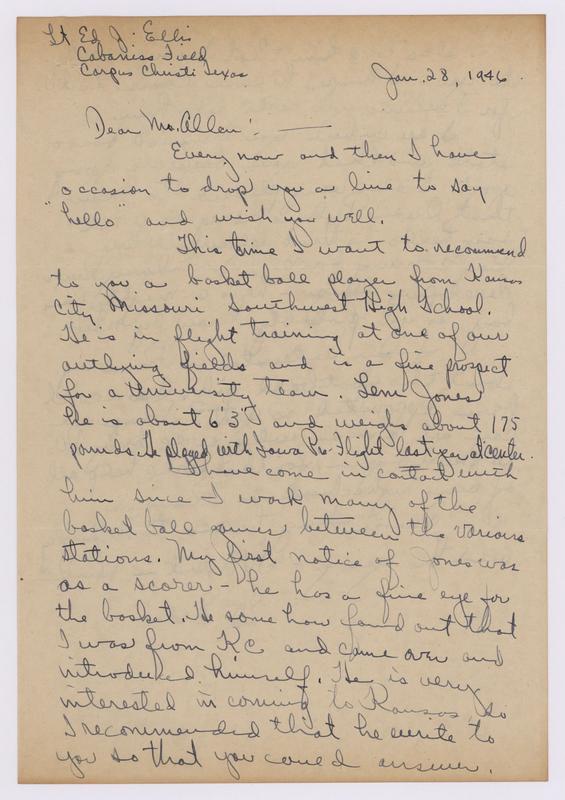 Lt Ed J. Ellis
Cabaniss Field
Corpus Christi Texas
Jan. 28, 1946.
Dear Mr. Allen: —
Every now and then I have
occasion to drop you a line to say
"hello" and wish you well.
This time I want to recommend
to you a basket ball player from Kansas
City Missouri Southwest High School.
He is in flight training at one of our
outlying fields and is a fine prospect
for a University team. Lem Jones
he is about 6'3" and weighs about 175
pounds. He played with Iowa Pre Flight last year at center.
I have come in contact with
him since I work many of the
basket ball games between the various
stations. My first notice of Jones was
as a scorer - he has a fine eye for
the basket. He some how found out that
I was from KC and came over and
introduced himself. He is very
interested in coming to Kansas so
I recommended that he write to
you so that you could answer.